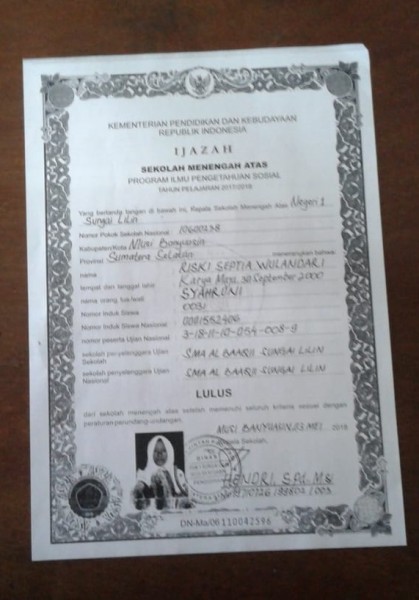 KEMENTERIAN PENDIDIKAN DAN KEBUDAYAAN
REPUBLIK INDONESIA
IJAZAH
SEKOLAH MENENGAH ATAS
PROGRAM ILMU PENGETAHUAN SOSIAL
TAHUN PELAJARAN 2017/2018
Yang bertanda tangan di bawah ini, Kepala Sekolah Menengah Atas Negeri 1
Sungai Lilin
Nomor Pokok Sekolah Nasional
Kabupaten/Kota Musi Banyuasin
Provinsi Sumatera Selatan menerangkan bahwa:
nama RISKI SEPTIA WULANDARI
tempat dan tanggal lahir Karya Maju, 30 September 2000
nama orang tua/wali SYAHRONI
Nomor Induk Siswa
Nomor Induk Siswa Nasional
nomor peserta Ujian Nasional 3-18-11-10-054-008-9
sekolah penyelenggara Ujian Sekolah SMA AL BAARII SUNGAI LILIN
sekolah penyelenggara Ujian Nasional SMA AL BAARII SUNGAI LILIN
LULUS
dari sekolah menengah atas setelah memenuhi seluruh kriteria sesuai dengan
peraturan perundang-undangan.
MUSI BANYUASIN, 03 MEI 2018
Kepala Sekolah,
HENDRI, S.Pd, M.Si
DN-Ma/06 110042596